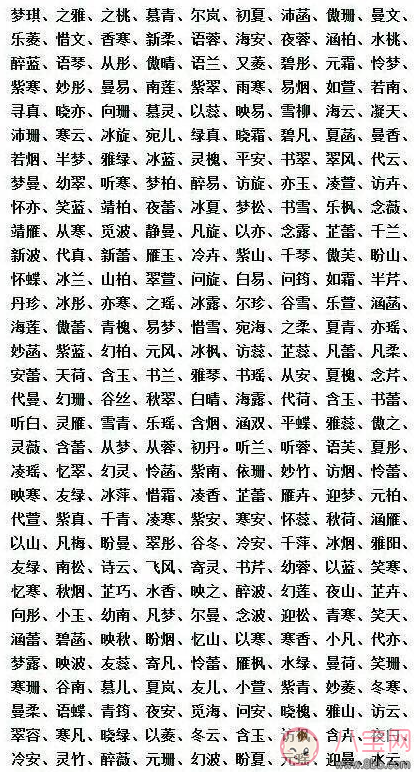 梦琪、之雅、之桃、慕青、尔岚、初夏、沛菡、傲珊、曼文、
乐菱、惜文、香寒、新柔、语蓉、海安、夜蓉、涵柏、水桃、
醉蓝、语琴、从彤、傲晴、语兰、又菱、碧彤、元霜、怜梦、
紫寒、妙彤、曼易、南莲、紫翠、雨寒、易烟、如萱、若南、
寻真、晓亦、向珊、慕灵、以蕊、映易、雪柳、海云、凝天、
沛珊、寒云、冰旋、宛儿、绿真、晓霜、碧凡、夏菡、曼香、
若烟、半梦、雅绿、冰蓝、灵槐、平安、书翠、翠风、代云、
梦曼、幼翠、听寒、梦柏、醉易、访旋、亦玉、凌萱、访卉、
怀亦、笑蓝、靖柏、夜蕾、冰夏、梦松、书雪、乐枫、念薇、
靖雁、从寒、觅波、静曼、凡旋、以亦、念露、芷蕾、千兰、
新波、代真、新蕾、雁玉、冷卉、紫山、千琴、傲芙、盼山、
怀蝶、冰兰、山柏、翠萱、问旋、白易、问筠、如霜、半芹、
丹珍、冰彤、亦寒、之瑶、冰露、尔珍、谷雪、乐萱、涵菡、
海莲、傲蕾、青槐、易梦、惜雪、宛海、之柔、夏青、亦瑶、
妙菡、紫蓝、幻柏、元风、冰枫、访蕊、芷蕊、凡蕾、凡柔、
安蕾、天荷、含玉、书兰、雅琴、书瑶、从安、夏槐、念芹、
代曼、幻珊、谷丝、秋翠、白晴、海露、代荷、含玉、书蕾、
听白、灵雁、雪青、乐瑶、含烟、涵双、平蝶、雅蕊、傲之、
灵薇、含蕾、从梦、从蓉、初丹。听兰、听蓉、语芙、夏彤、
凌瑶、忆翠、幻灵、怜菡、紫南、依珊、妙竹、访烟、怜蕾、
映寒、友绿、冰萍、惜霜、凌香、芷蕾、雁卉、迎梦、元柏、
代萱、紫真、千青、凌寒、紫安、寒安、怀蕊、秋荷、涵雁、
以山、凡梅、盼曼、翠彤、谷冬、冷安、千萍、冰烟、雅阳、
友绿、南松、诗云、飞风、寄灵、书芹、幼蓉、以蓝、笑寒、
忆寒、秋烟、芷巧、水香、映之、醉波、幻莲、夜山、芷卉、
向彤、小玉、幼南、凡梦、尔曼、念波、迎松、青寒、笑天、
涵蕾、碧菡、映秋、盼烟、忆山、以寒、寒香、小凡、代亦、
梦露、映波、友蕊、寄凡、怜蕾、雁枫、水绿、曼荷、笑珊、
寒珊、谷南、慕儿、夏岚、友儿、小萱、紫青、妙菱、冬寒、
曼柔、语蝶、青筠、夜安、觅海、问安、晓槐、雅山、访云、
翠容、寒凡、晓绿、以菱、冬云、含玉、访枫、含卉、夜白、
冷安、灵竹、醉薇、元珊、幻波、盼夏、元瑶、迎曼、水云、